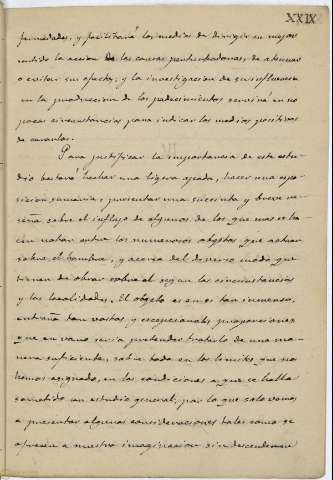 XXIX
fermedades, y facilitará los medios de dirigir en mejor
sentido la accion de las causas perturbadoras, de atenuar
o evitar sus efectos; y la investigacion de su influencia
en la produccion de los padecimientos servirá en no
pocas circunstancias para indicar los medios positivos
de curarlos.
Para justificar la importancia de este estu-
dio bastará hechar una ligera ojeada, hacer una espo-
sicion sumaria, y presentar una sucinta y breve re-
seña sobre el influjo de algunos de los que mas se ha-
cen notar entre los numerosos objetos que actuan
sobre el hombre, y acerca del diverso modo que
tienen de obrar sobre el segun las circunstancias
y las localidades. El objeto es en si tan inmenso,
entraña tan vastas y escepcionales proporciones
que en vano seria pretender tratarlo de una ma-
nera suficiente, sobre todo en los limites que nos
hemos asignado, en las condiciones a que se halla
sometido un estudio general; por lo que solo vamos
a presentar algunas consideraciones tales como se
ofrecen a nuestra imaginacion sin descender a